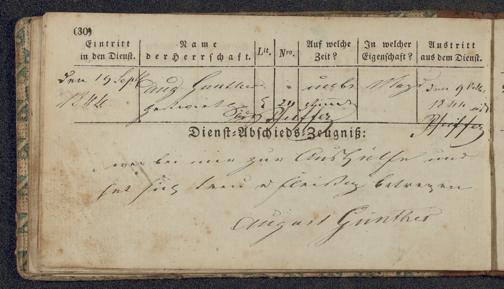 (30)
Eintritt in den Dienst. Name der Herrschaft. Lit. Nro. Auf welche Zeit? In welcher Eigenschaft? Austritt aus dem Dienst.
den 19 Sept Aug Gunther unbs Magd den 9
1844 1844
Pfeiffer Pfeiffer
Dienst-Abschieds-Zeugniß:
war bei mir zur Aushülfe und
hat sich treu u fleißig betragen
August Günther